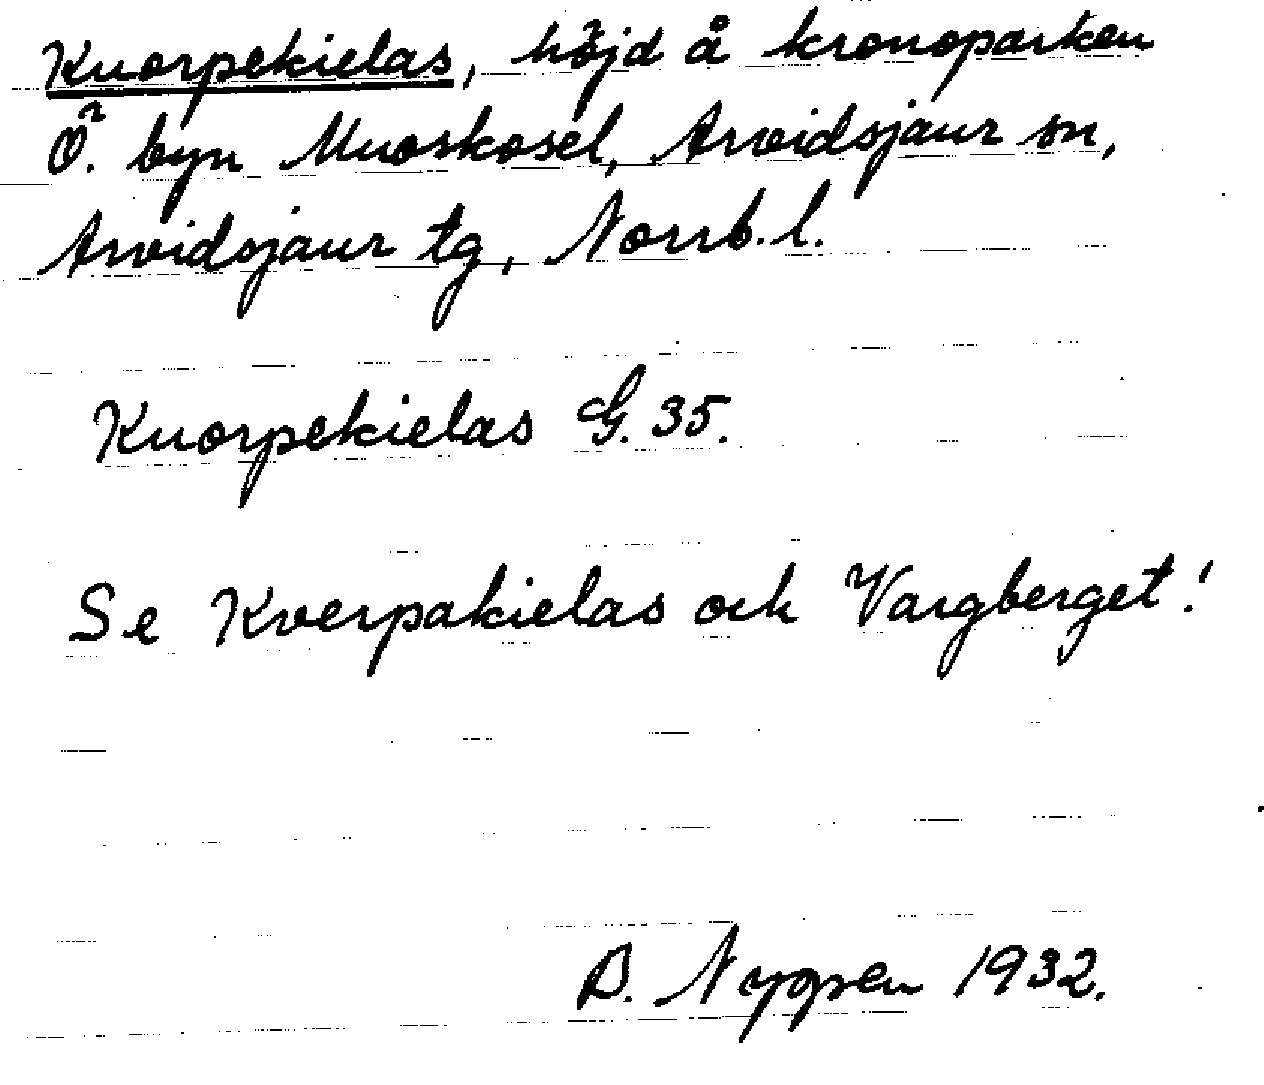 Kuorpekielas, höjd å kronoparken
Ö. byn Muoskosel, Arvidsjaur sn,
Arvidsjaur tg, Norrb. l.
Kuorpekielas G. 35.
Se Kverpakielas och Vargberget!
B. Nyppen 1932.